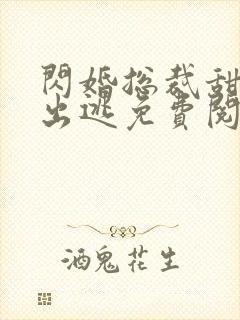 閃婚總裁甜
出逃免費閱
酒鬼花生